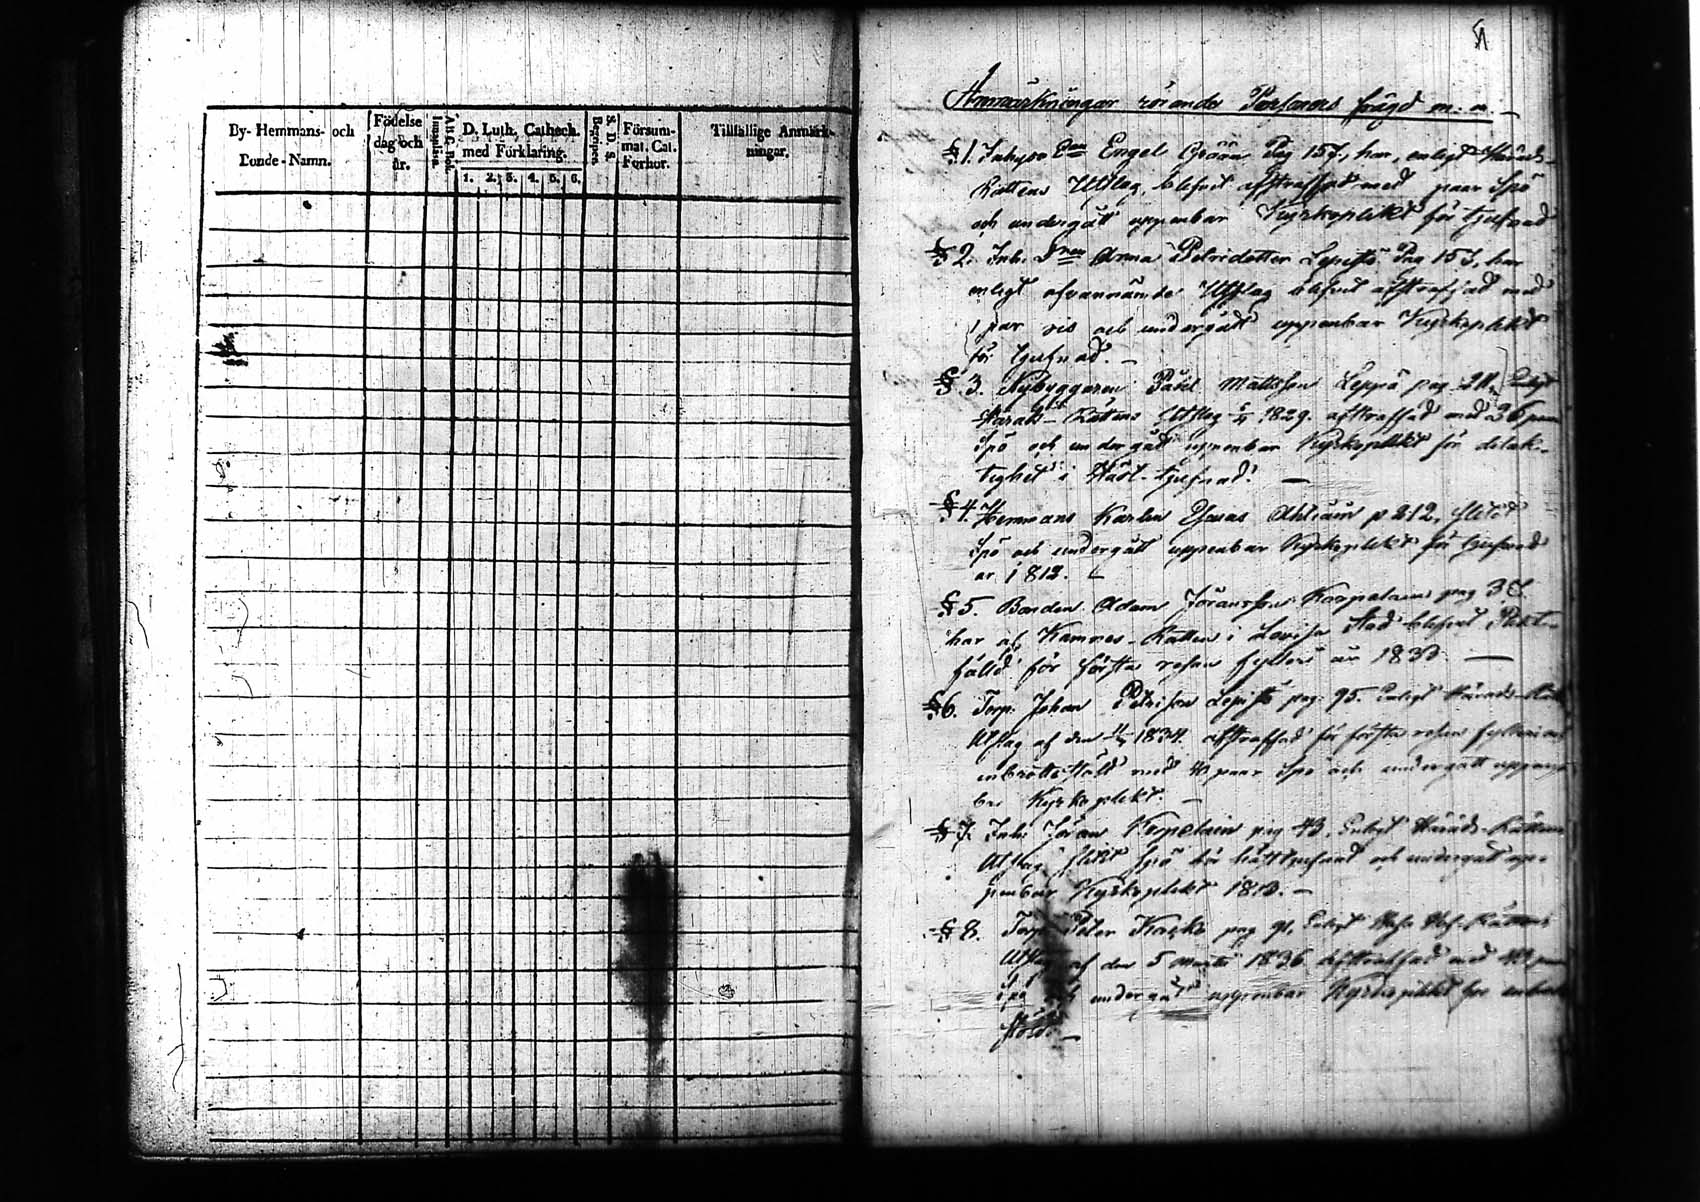 By- Hemmans- och
Bonde-Namn.
Födelse
dag och
år.
A B C Bok.
Innanläsn.
D. Luth. Cathech.
med Förklaring.
1. 2. 3. 4. 5. 6.
S. D. S.
Begrepet.
Försum-
mat. Cat.
Förhör.
Tillfällige Anmärk-
ningar.
Anmärkningar rörande Personers frägd m. m.
§ 1. Engel Pag 157, har, enligt Härads-
Rättens Utslag, blifvit afstraffad med paar Spö
och undergått uppenbar Kyrkoplikt för tjufnad
§ 2. Inh. Anna Petridotter Lepistö Pag 157, har
enligt ofvannämde Utslag blifvit afstraffad med
par ris och undergått uppenbar Kyrkoplikt
för tjufnad. –
§. 3. Nybyggaren Påhl Mattsson Leppä pag. 211, Enligt
Härads-Rättens Utslag 1829. afstraffad med 26 paar
Spö och undergått uppenbar Kyrkoplikt för delak-
tighet i tjufnad. –
§ 4. Hemmans Karlen Esaias p 212, slitit
Spö och undergått uppenbar Kyrkoplikt för tjufnad
år 1812. –
§ 5. Bonden Adam Göransson Karpelain pag 37.
har af Kämners-Rätten i Lovisa Stad blifvit Plikt-
fälld för första resan fylleri år 1833. –
§ 6. Torp. Johan Petrison Lepistö pag. 95. Enligt Härads-Rätt
Utslag af den 1834. afstraffad för första resan fylleri och
inbrotts Stöld med 40 paar Spö och undergått uppen-
bar Kyrkoplikt. –
§ 7. Inh. Göran Karpelain pag 43. Enligt Härads-Rättens
Utslag slitit Spö för och undergått up-
penbar Kyrkoplikt 1813. –
§ 8. Torp. Peter pag 91, Enligt Hof-Rättens
Utslag af den 5 Martii 1836 afstraffad med 40 paar
Spö och undergått uppenbar Kyrkoplikt för
stöld. –